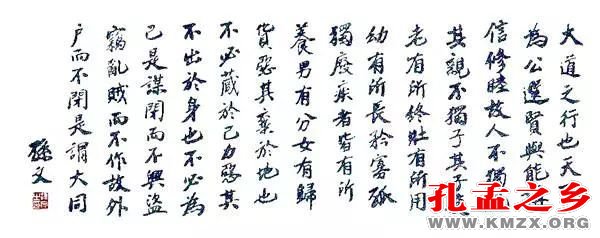 大道之行也天
為公選賢與能講
信修睦故人不獨
其親不獨子其子使
老有所終壯有所用
幼有所長矜寡孤
獨廢疾者皆有所
養男有分女有歸
貨惡其棄於地也
不必藏於己力惡其
不出於身也不必為
己是謀閉而不興盜
竊亂賊而不作故外
戶而不閉是謂大同
孫文
孔孟之乡
WWW.KMZX.ORG